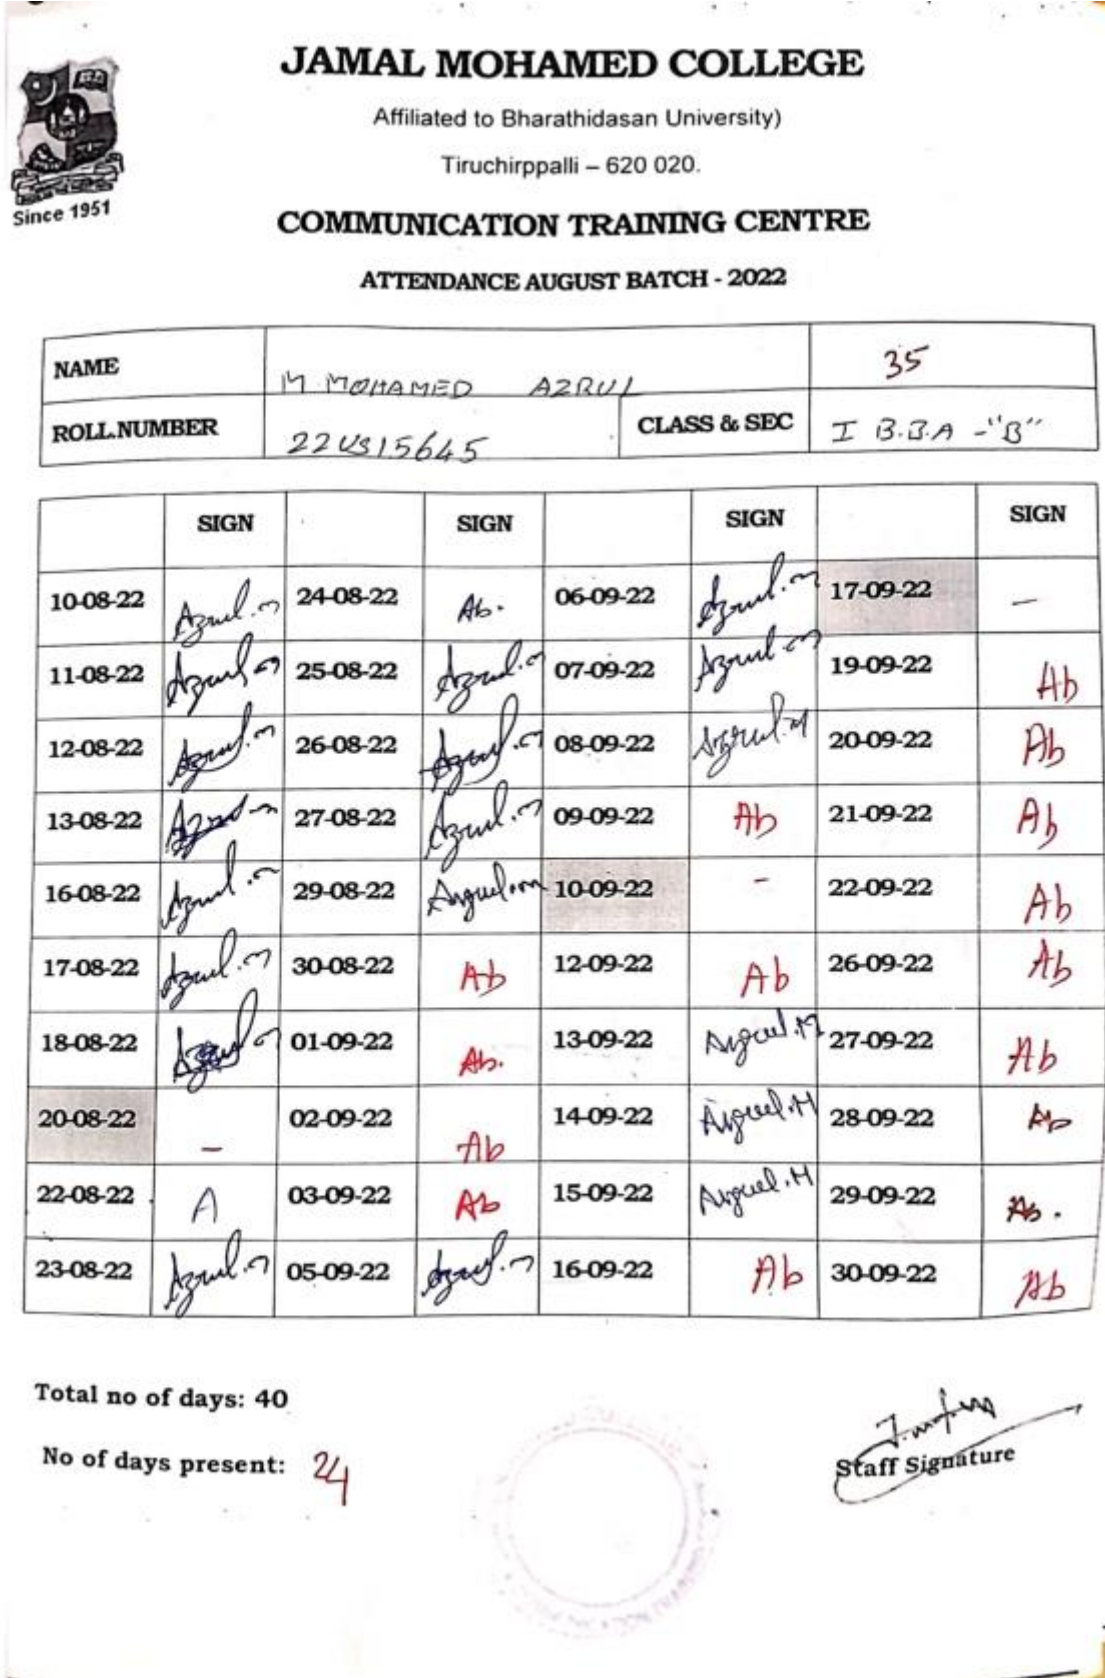 JAMAL MOHAMED COLLEGE
Affiliated to Bharathidasan University)
Tiruchirppalli – 620 020.
Since 1951
COMMUNICATION TRAINING CENTRE
ATTENDANCE AUGUST BATCH - 2022
NAME M MOHAMED AZRUL 35
ROLL.NUMBER 22US15645 CLASS & SEC I B.B.A -"B"
SIGN SIGN SIGN SIGN
10-08-22 Azrul.m 24-08-22 Ab. 06-09-22 Azrul.m 17-09-22 –
11-08-22 Azrul m 25-08-22 Azrul.m 07-09-22 Azrul m 19-09-22 Ab
12-08-22 Azrul.m 26-08-22 Azrul.m 08-09-22 Azrul.M 20-09-22 Ab
13-08-22 Azrul m 27-08-22 Azrul.m 09-09-22 Ab 21-09-22 Ab
16-08-22 Azrul.m 29-08-22 10-09-22 - 22-09-22 Ab
17-08-22 Azrul.m 30-08-22 Ab 12-09-22 Ab 26-09-22 Ab
18-08-22 Azrul m 01-09-22 Ab. 13-09-22 27-09-22 Ab
20-08-22 – 02-09-22 Ab 14-09-22 28-09-22 Ab
22-08-22 A 03-09-22 Ab 15-09-22 29-09-22 Ab.
23-08-22 Azrul.m 05-09-22 Azrul.m 16-09-22 Ab 30-09-22 Ab
Total no of days: 40
No of days present: 24
Staff Signature